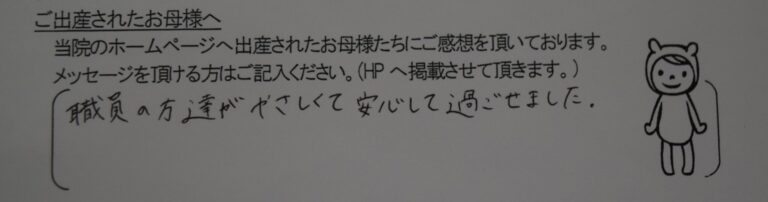 ご出産されたお母様へ
当院のホームページへ出産されたお母様たちにご感想を頂いております。
メッセージを頂ける方はご記入ください。(HP へ掲載させて頂きます。)
職員の方達がやさしくて安心して過ごせました.